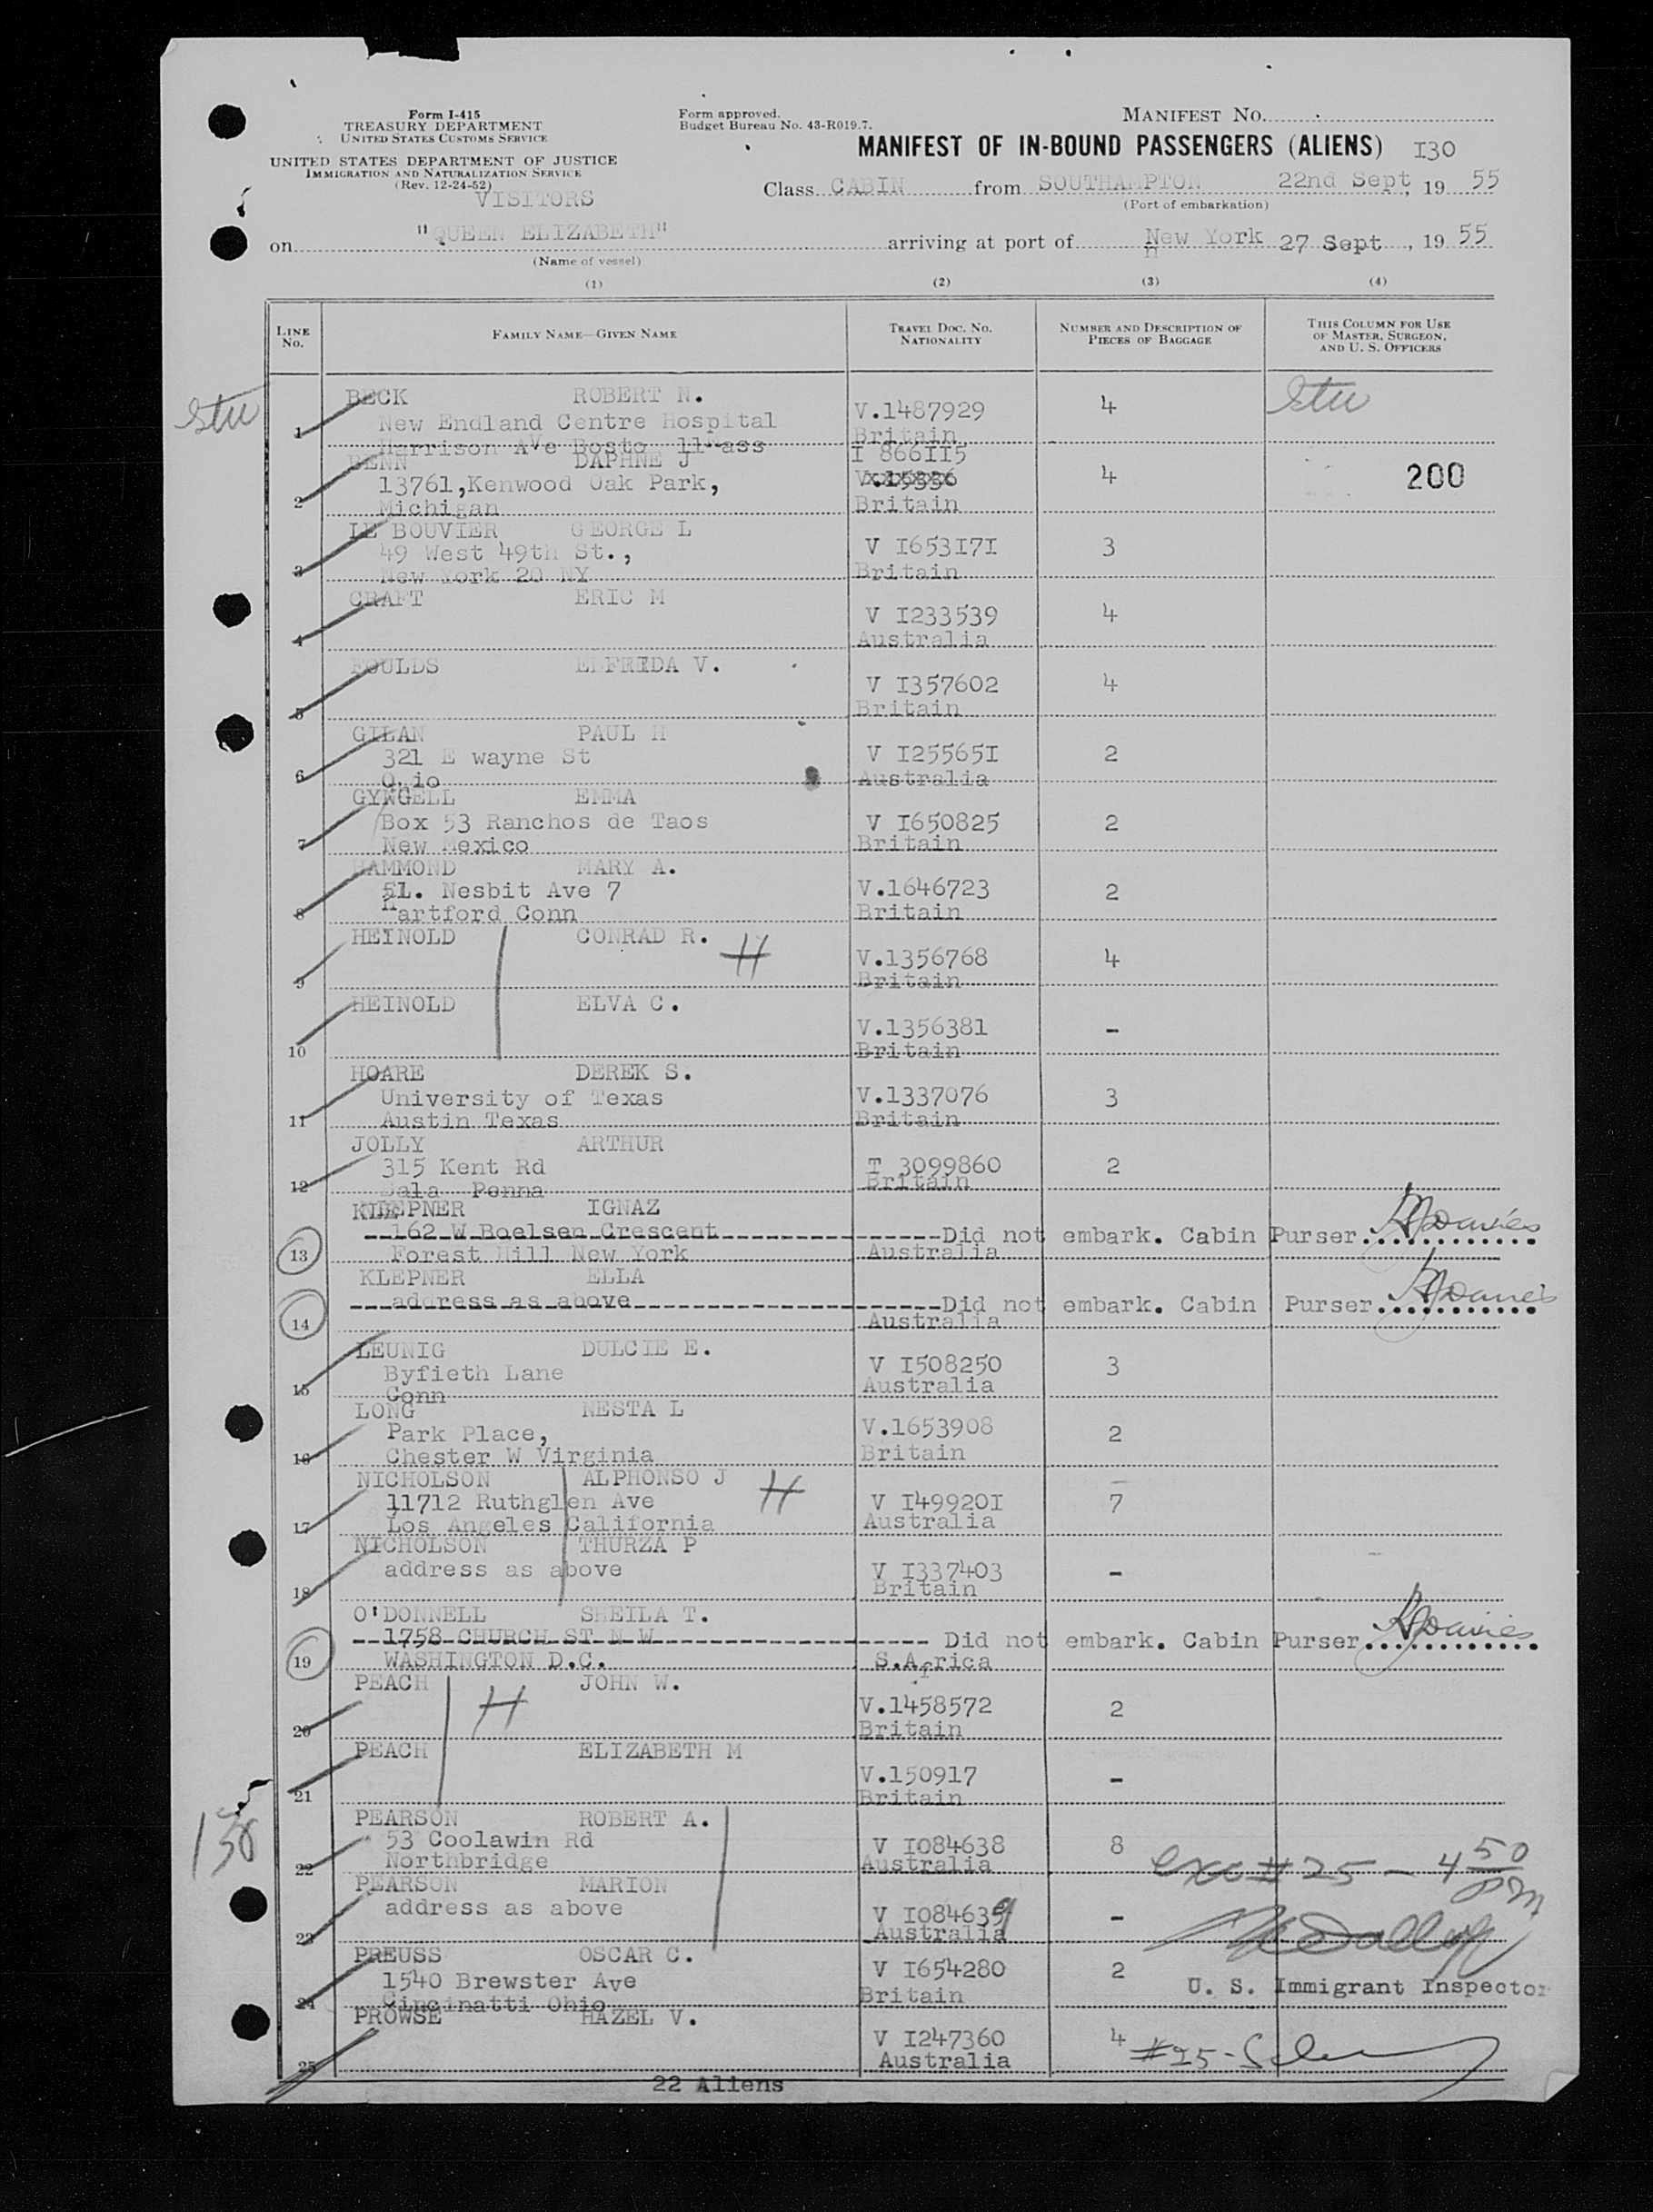 Form I-415
TREASURY DEPARTMENT
UNITED STATES CUSTOMS SERVICE
UNITED STATES DEPARTMENT OF JUSTICE
IMMIGRATION AND NATURALIZATION SERVICE
(Rev. 12-24-52)
VISITORS
Form approved.
Budget Bureau No. 43-R019.7.
MANIFEST No.
MANIFEST OF IN-BOUND PASSENGERS (ALIENS) I30
Class CABIN from SOUTHAMPTON 22nd Sept, 19 55
(Port of embarkation)
on "QUEEN ELIZABETH" arriving at port of New York 27 Sept, 19 55
(Name of vessel)
(1) (2) (3) (4)
LINE No. FAMILY NAME—GIVEN NAME TRAVEL DOC. NO. NATIONALITY NUMBER AND DESCRIPTION OF PIECES OF BAGGAGE THIS COLUMN FOR USE OF MASTER, SURGEON, AND U. S. OFFICERS
Stu BECK ROBERT N. Stu
New Endland Centre Hospital V.1487929 4
1 Harrison AVe Bosto 11 ass Britain
BENN DAPHNE J I 866II5
13761,Kenwood Oak Park, V.15336 4 200
2 Michigan Britain
LE BOUVIER GEORGE L
49 West 49th St., V I653I7I 3
3 New York 20 NY Britain
CRAFT ERIC M
V I233539 4
4 Australia
FOULDS ELFRIDA V.
V I357602 4
5 Britain
GILAN PAUL H
321 E wayne St V I25565I 2
6 O io Australia
GYNGELL EMMA
Box 53 Ranchos de Taos V I650825 2
7 New Mexico Britain
HAMMOND MARY A.
51. Nesbit Ave 7 V.1646723 2
8 Hartford Conn Britain
HEINOLD CONRAD R. H
V.1356768 4
9 Britain
HEINOLD ELVA C.
V.1356381 -
10 Britain
HOARE DEREK S.
University of Texas V.1337076 3
11 Austin Texas Britain
JOLLY ARTHUR
315 Kent Rd T 3099860 2
12 Bala Penna Britain
KLEPNER IGNAZ
162 W Boelsen Crescent Did not embark. Cabin Purser. Davies
13 Forest Hill New York Australia
KLEPNER ELLA
address as above Did not embark. Cabin Purser. Davies
14 Australia
LEUNIG DULCIE E.
Byfieth Lane V I508250 3
15 Conn Australia
LONG NESTA L
Park Place, V.1653908 2
16 Chester W Virginia Britain
NICHOLSON ALPHONSO J H
11712 Ruthglen Ave V I49920I 7
17 Los Angeles California Australia
NICHOLSON THURZA P
address as above V I337403 -
18 Britain
O'DONNELL SHEILA T.
1758 CHURCH ST N W Did not embark. Cabin Purser. Davies
19 WASHINGTON D.C. S.Africa
PEACH JOHN W.
H V.1458572 2
20 Britain
PEACH ELIZABETH M
V.150917 -
21 Britain
PEARSON ROBERT A.
53 Coolawin Rd V I084638 8
22 Northbridge Australia exc #25 - 4 50 pm
PEARSON MARION
address as above V I084639 -
23 Australia
PREUSS OSCAR C.
1540 Brewster Ave V I654280 2 U. S. Immigrant Inspector
24 Cincinatti Ohio Britain
PROWSE HAZEL V.
V I247360 4 #25-
25 Australia
22 Aliens